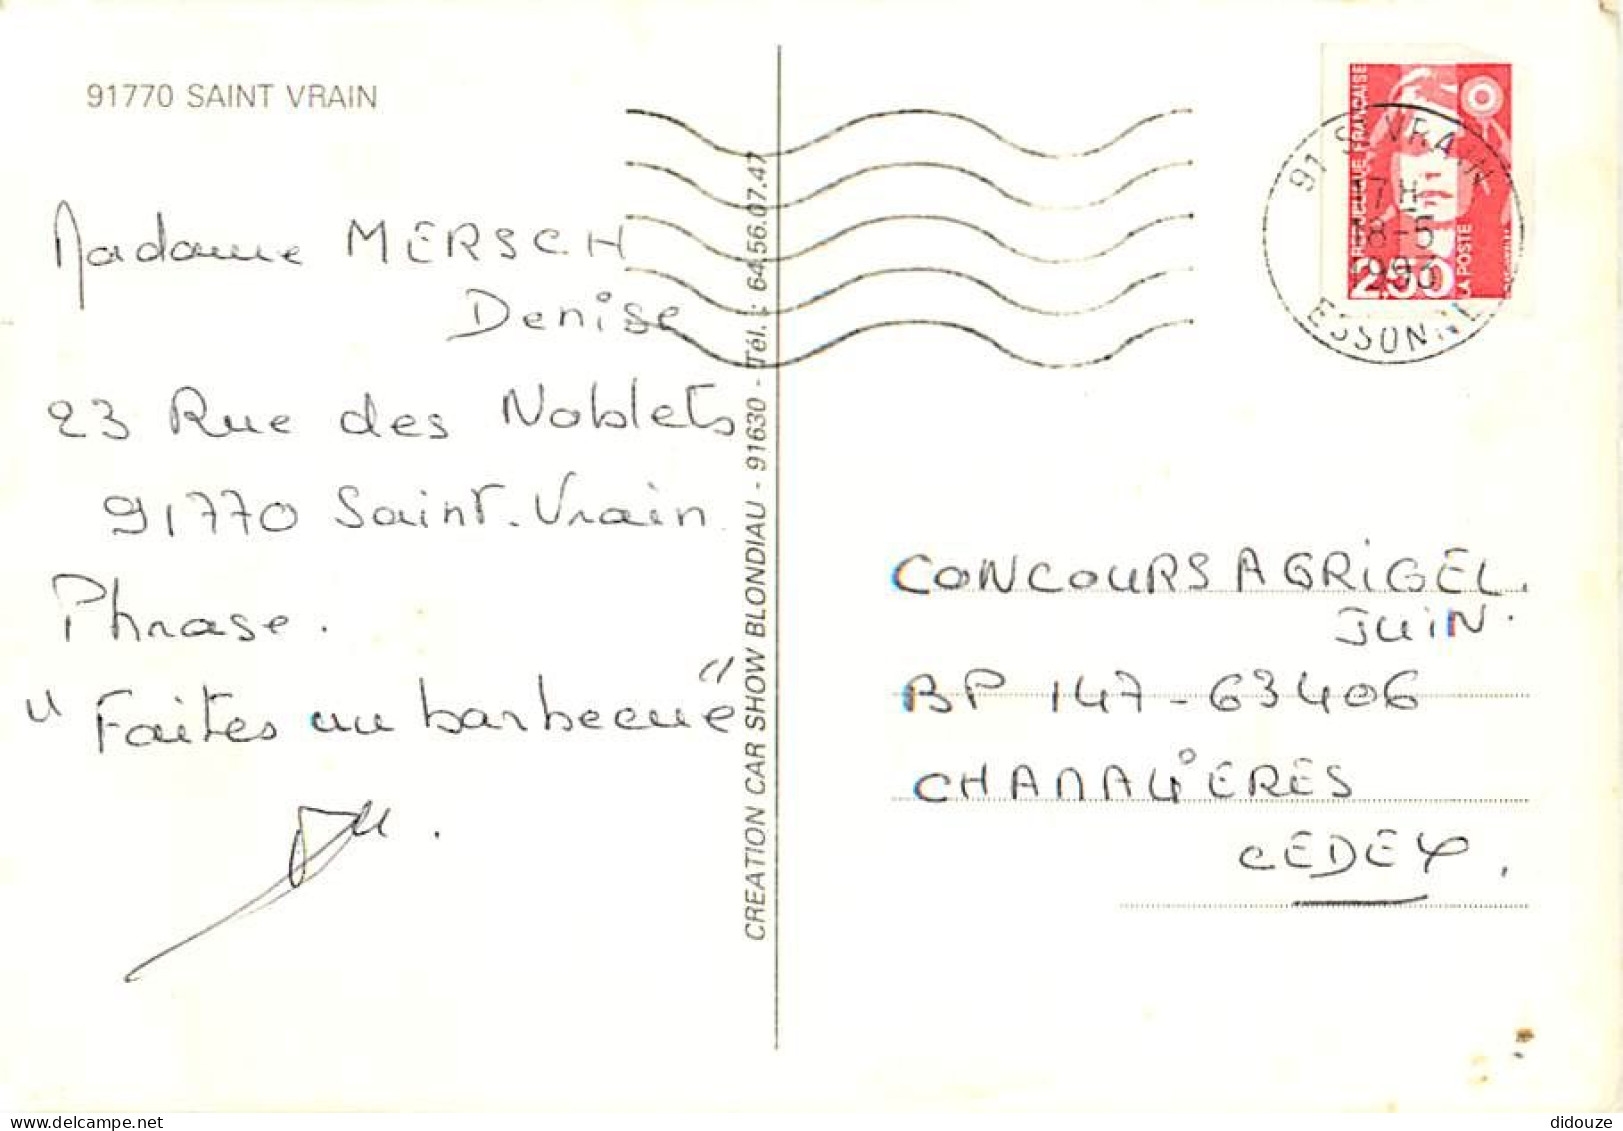 91770 SAINT VRAIN
Madame MERSCH
Denise
23 Rue des Noblets
91770 Saint-Vrain
Phrase.
"Faites un barbecue"
CREATION CAR SHOW BLONDIAU - 91630 - Tél. : 64.56.07.47
REPUBLIQUE FRANÇAISE
2.50
LA POSTE
91 ST VRAIN
17H
18-5
1993
ESSONNE
CONCOURS AGRIGEL.
JUIN.
BP 147-63406
CHAMALIERES
CEDEX,
didouze